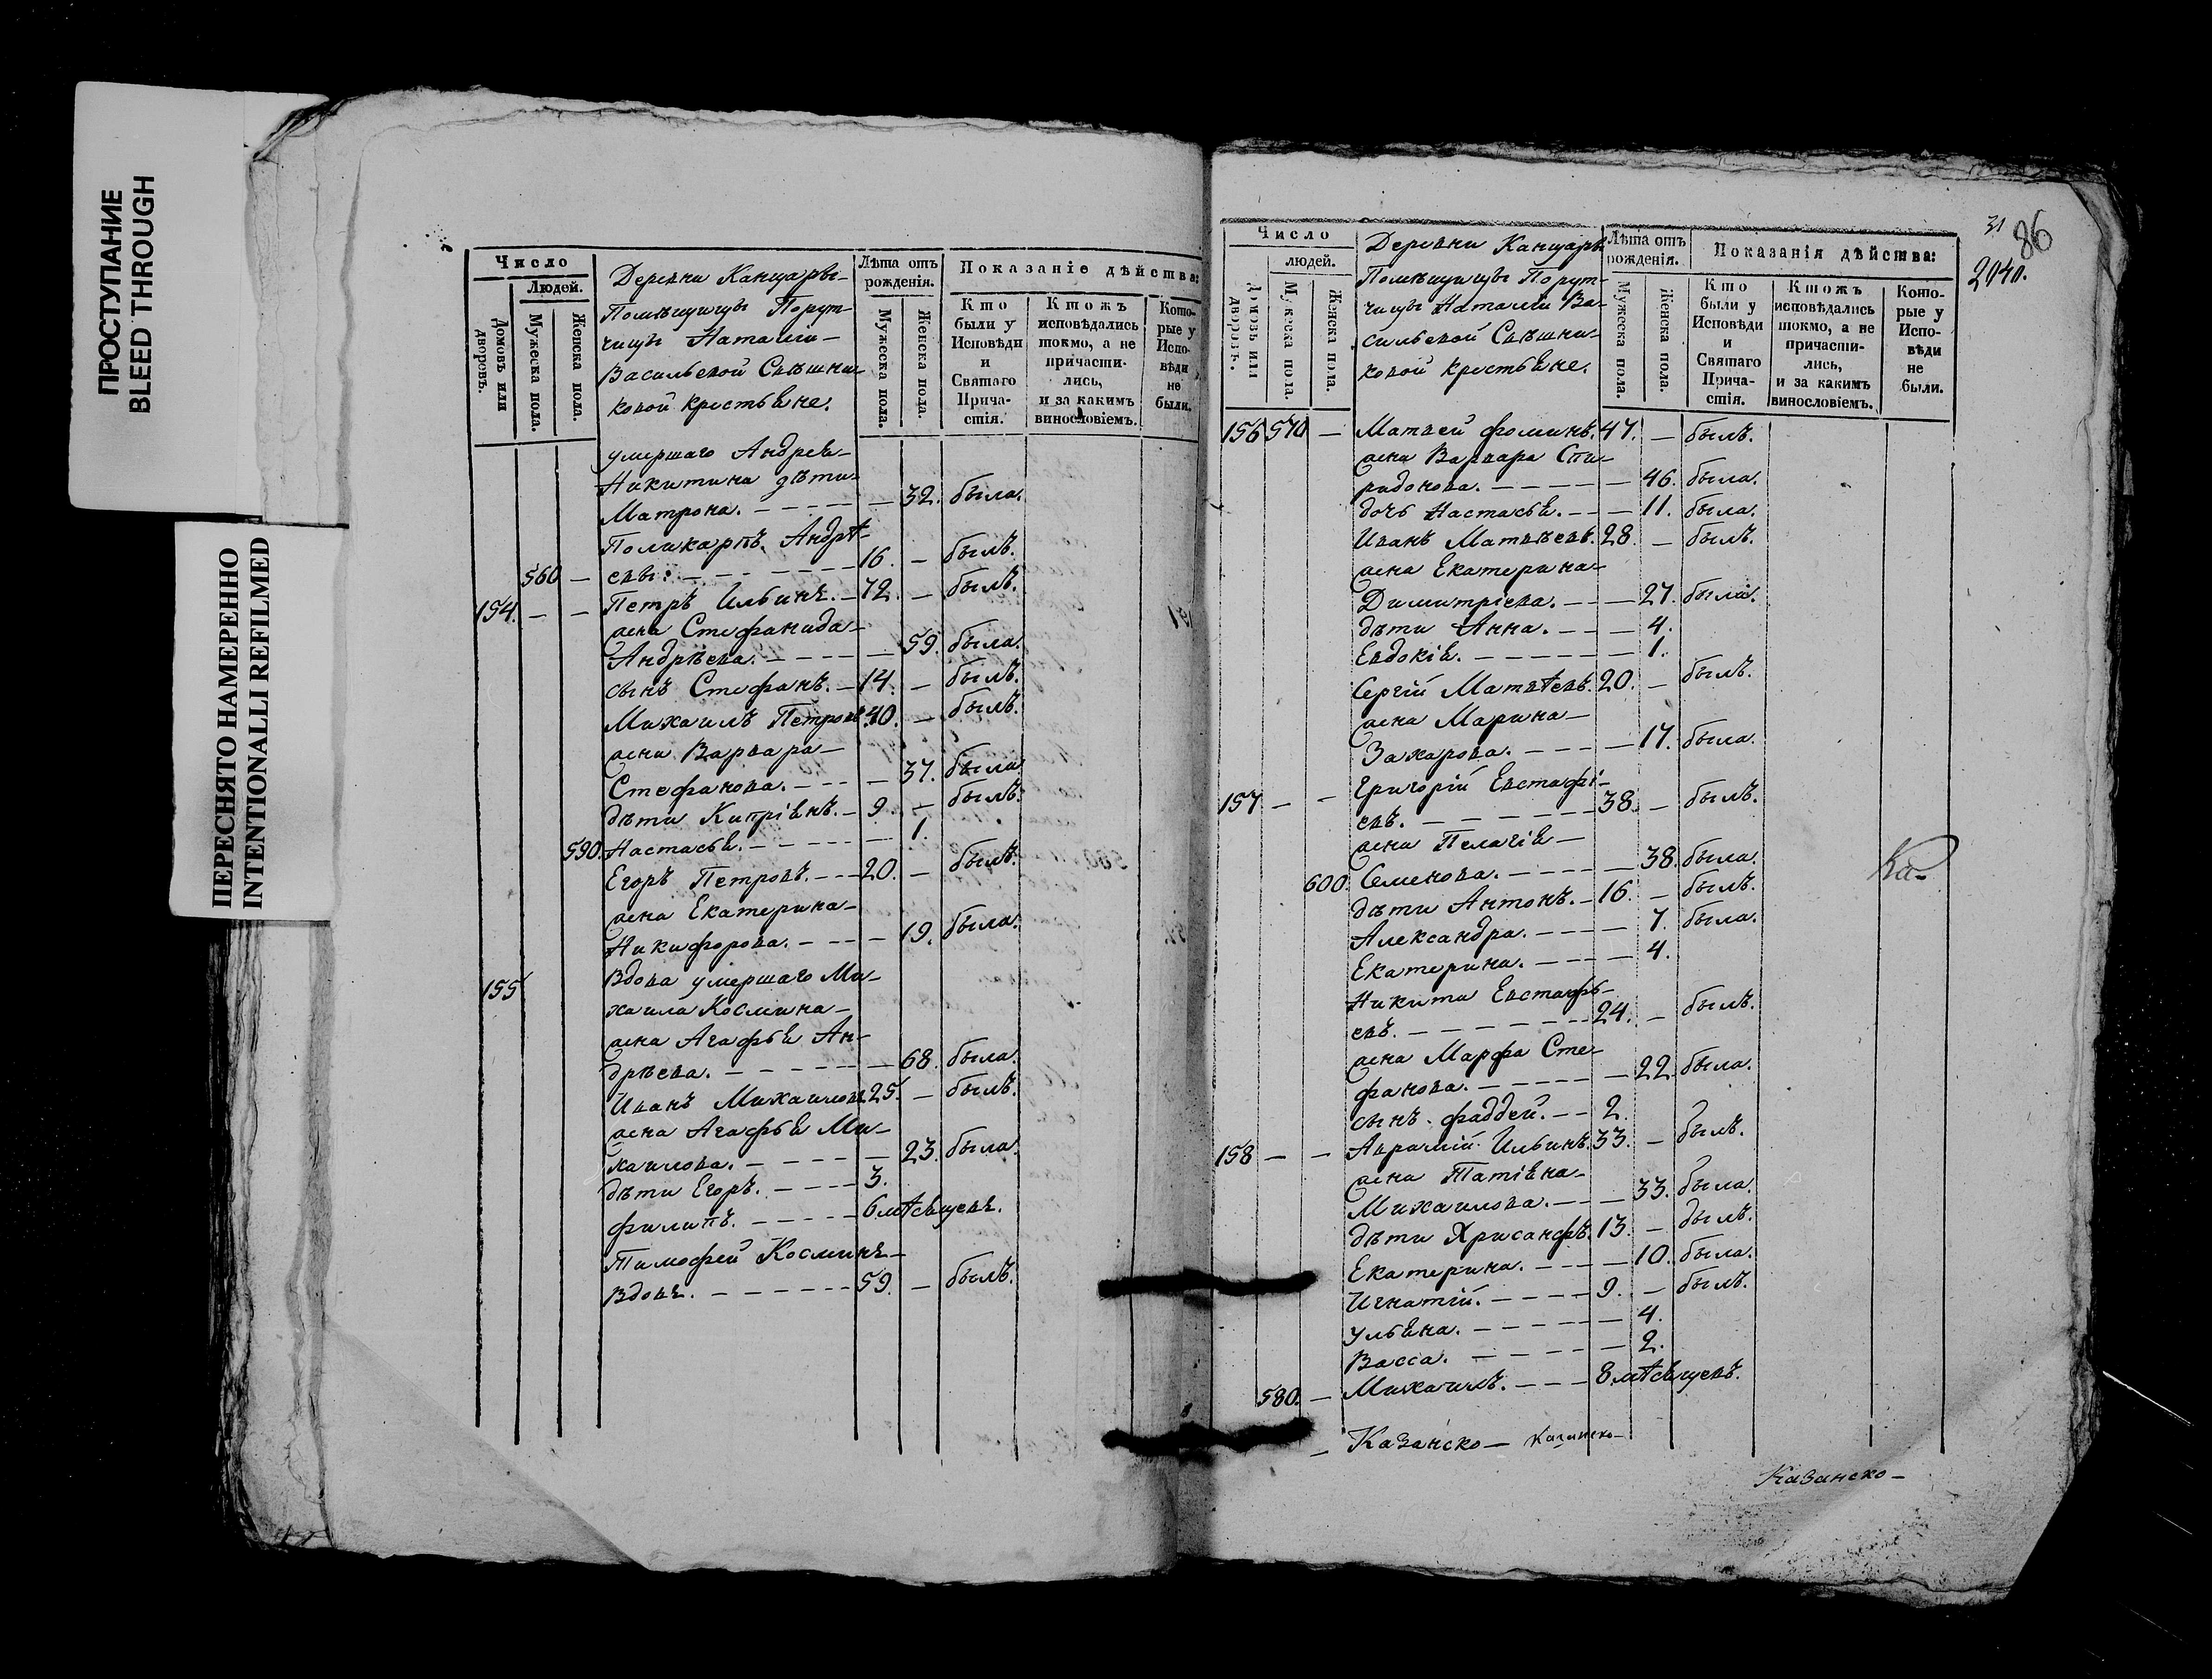 ПРОСТУПАНИЕ
BLEED THROUGH
ПЕРЕСНЯТО НАМЕРЕННО
INTENTIONALLI REFILMED
Число
Людей.
Домовъ или дворовъ.
Мужеска пола.
Женска пола.
Деревни Канцары
Помѣщицы Порут-
чицы Наталіи
Васильевой Свѣшни-
ковой крестьяне.
Лѣта отъ рожденія.
Мужеска пола.
Женска пола.
Показаніе дѣйства:
Кто были у Исповѣди и Святаго Прича-стія.
Ктожъ исповѣдались токмо, а не причасти-лись, и за какимъ винословіемъ.
Кото-рые у Испо-вѣди не были.
умершаго Андрея
Никитина дѣти
Матрона. — 32. была.
Поликарпъ. Андрѣ-
560 — евы: 16. — былъ.
154. — — Петръ Ильинъ. 72. — былъ.
жена Стефанида
Андрѣева. — 59. была.
сынъ Стефанъ. 14. — былъ.
Михаилъ Петровъ. 40. — былъ.
жена Варвара
Стефанова. — 37. была.
дѣти Кипріянъ. 9. — былъ.
590. Настасья. — 1.
Егоръ Петровъ. 20. — былъ.
жена Екатерина
Никифорова. — 19. была.
155 Вдова умершаго Ми-
хаила Космина
жена Агафья Ан-
дрѣева. — 68. была.
Иванъ Михаиловъ. 25. — былъ.
жена Агафья Ми-
хаилова. — 23. была.
дѣти Егоръ. 3.
филипъ. 6 мѣсяцевъ.
Тимофей Косминъ
вдовъ. 59. — былъ.
31
86
204 л.
Число
людей.
Домовъ или дворовъ.
Мужеска пола.
Женска пола.
Деревни Канцары
Помѣщицы Порут-
чицы Наталіи Ва-
сильевой Свѣшни-
ковой крестьяне.
Лѣта отъ рожденія.
Мужеска пола.
Женска пола.
Показанія дѣйства:
Кто были у Исповѣди и Святаго Прича-стія.
Ктожъ исповѣдались токмо, а не причасти-лись, и за какимъ винословіемъ.
Кото-рые у Испо-вѣди не были.
156 570 — Матвей фоминъ. 47. — былъ.
жена Варвара Спи-
ридонова. — 46. была.
дочь Настасья. — 11. была.
Иванъ Матвѣевъ. 28. — былъ.
жена Екатерина
Димитріева. — 27. была.
дѣти Анна. — 4.
Евдокія. — 1.
Сергій Матвѣевъ. 20. — былъ.
жена Марина
Захарова. — 17. была.
157 — — Григорій Евстафі-
евъ. 38. — былъ.
жена Пелагія
600. Семенова. — 38. была.
дѣти Антонъ. 16. — былъ.
Александра. — 7. была.
Екатерина. — 4.
Никита Евстафь-
евъ. 24. — былъ.
жена Марфа Сте-
фанова. — 22. была.
сынъ фаддей. 2.
158 — — Аврамій Ильинъ. 33. — былъ.
жена Татіяна
Михаилова. — 33. была.
дѣти Хрисанфъ. 13. — былъ.
Екатерина. — 10. была.
Игнатій. 9. — былъ.
Ульяна. — 4.
Васса. — 2.
580. — Михаилъ. 8 мѣсяцевъ.
Ка-
Казанско — Казанско —
Казанско —